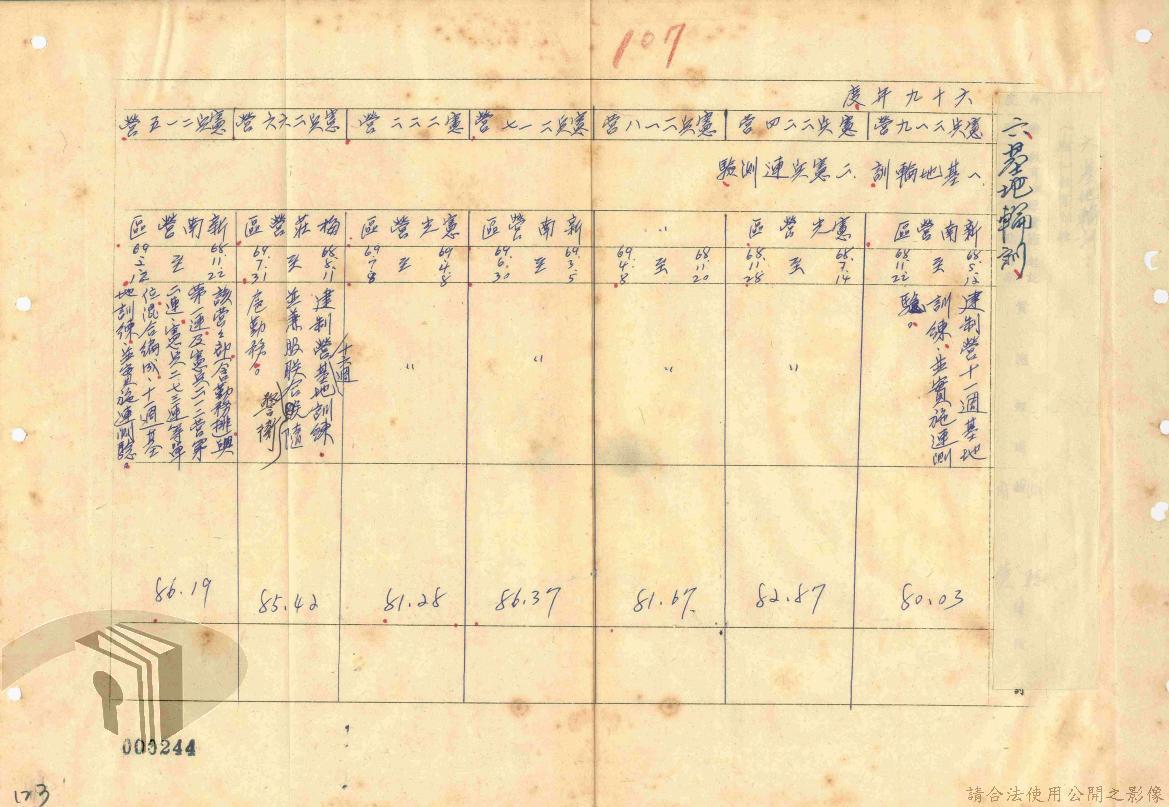 107
六十九年度
六、基地輪訓
憲兵二一九營
憲兵二二四營
憲兵二一八營
憲兵二一七營
憲二二二營
憲兵二六六營
憲兵二一五營
一、基地輪訓。二、憲兵連測驗。
新南營區
68.5.12至68.11.22
建制營十一週基地訓練、並實施連測驗。
80.03
憲光營區
68.7.14至68.11.28
〃
82.87
〃
68.11.20至69.4.8
〃
81.67
新南營區
69.3.5至69.6.30
〃
86.37
憲光營區
69.4.8至69.7.8
〃
81.28
梅莊營區
68.8.11至69.7.31
建制營基地訓練
十六週
並兼服聯合
隨扈勤務。
警衛
85.42
新南營區
68.11.22至69.2.12
該營營部含勤務排與第一連及憲兵二一二營第二連、憲兵二七三連等單位混合編成、十週基地訓練、並實施連測驗。
86.19
000244
123
請合法使用公開之影像